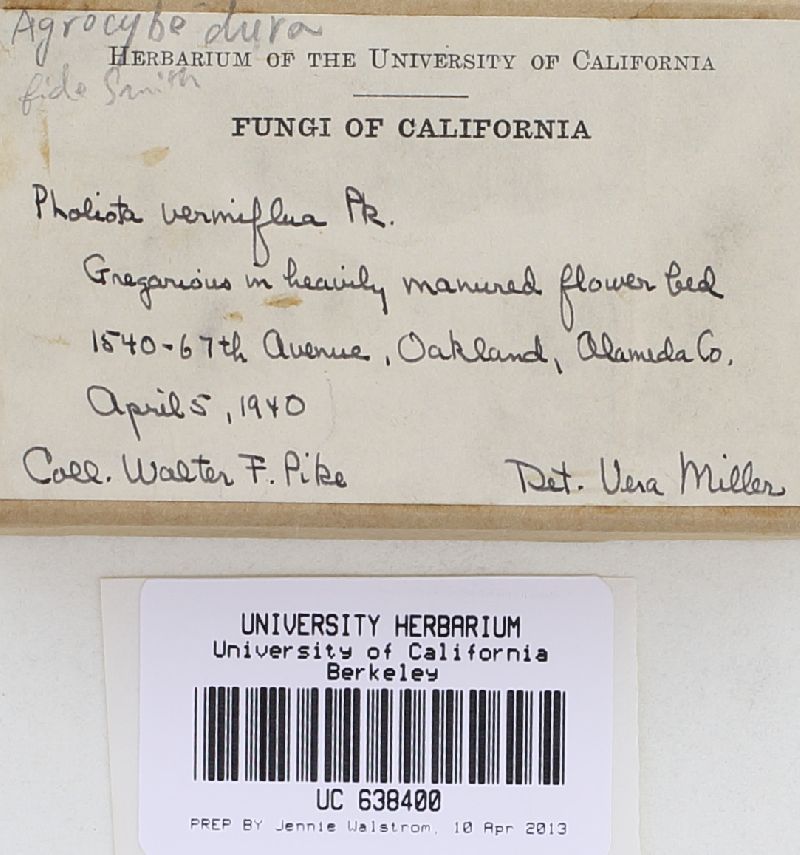 Agrocybe dura
HERBARIUM OF THE UNIVERSITY OF CALIFORNIA
fide Smith
FUNGI OF CALIFORNIA
Pholiota vermiflua Pk.
Gregarious in heavily manured flower bed
1540-67th Avenue, Oakland, Alameda Co.
April 5, 1940
Coll. Walter F. Pike
Det. Vera Miller
UNIVERSITY HERBARIUM
University of California
Berkeley
UC 638400
PREP BY Jennie Walstrom, 10 Apr 2013